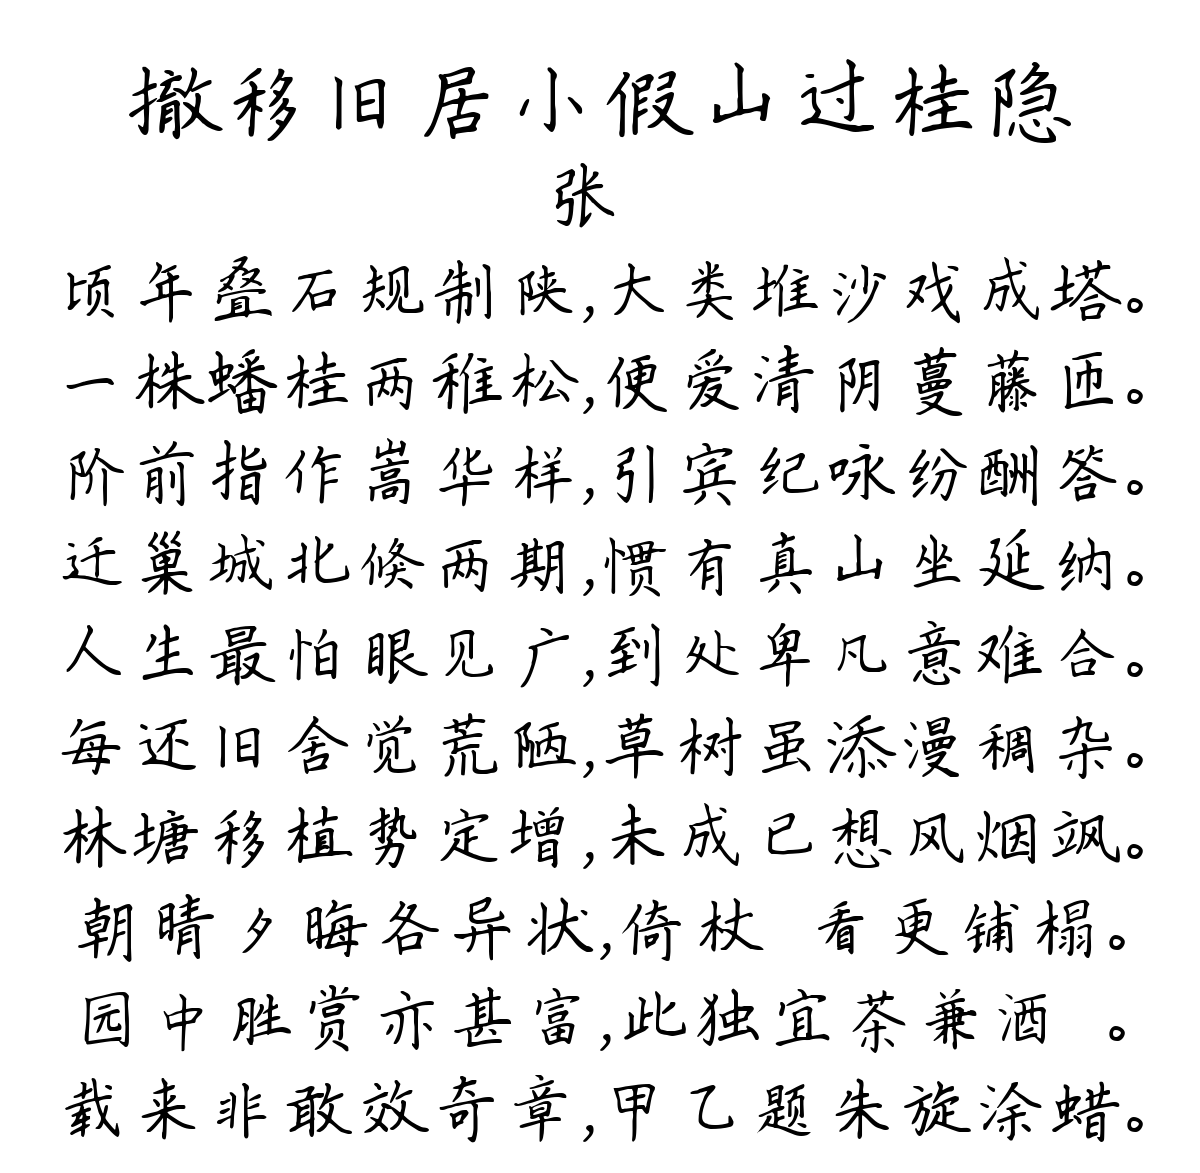 撤移旧居小假山过桂隐
张
顷年叠石规制陕,大类堆沙戏成塔。
一株蟠桂两稚松,便爱清阴蔓藤匝。
阶前指作嵩华样,引宾纪咏纷酬答。
迁巢城北倏两期,惯有真山坐延纳。
人生最怕眼见广,到处卑凡意难合。
每还旧舍觉荒陋,草树虽添漫稠杂。
林塘移植势定增,未成已想风烟飒。
朝晴夕晦各异状,倚杖 看更铺榻。
园中胜赏亦甚富,此独宜茶兼酒 。
载来非敢效奇章,甲乙题朱旋涂蜡。